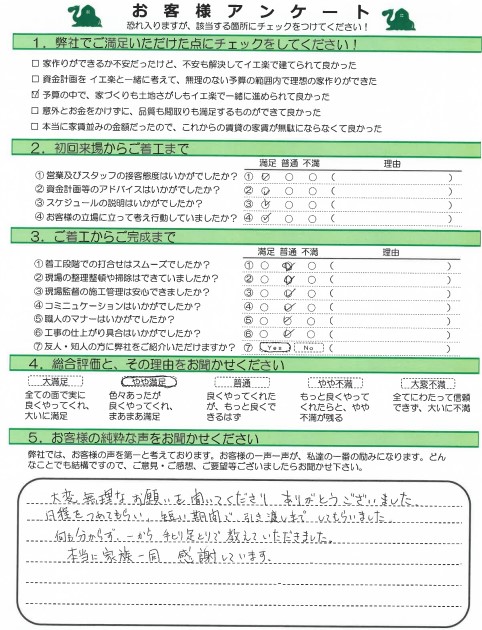 お客様アンケート
恐れ入りますが、該当する箇所にチェックをつけてください！
1．弊社でご満足いただけた点にチェックをしてください！
□ 家作りができるか不安だったけど、不安も解決してイエ楽で建てられて良かった
□ 資金計画を イエ楽と一緒に考えて、無理のない予算の範囲内で理想の家作りができた
☑ 予算の中で、家づくりも土地さがしもイエ楽で一緒に進められて良かった
□ 意外とお金をかけずに、品質も間取りも満足するものができて良かった
□ 本当に家賃並みの金額だったので、これからの賃貸の家賃が無駄にならなくて良かった
2．初回来場からご着工まで
満足 普通 不満 理由
①営業及びスタッフの接客態度はいかがでしたか？ ① ○ ○ ○ （ ）
②資金計画等のアドバイスはいかがでしたか？ ② ○ ○ ○ （ ）
③スケジュールの説明はいかがでしたか？ ③ ○ ○ ○ （ ）
④お客様の立場に立って考え行動していましたか？ ④ ○ ○ ○ （ ）
3．ご着工からご完成まで
満足 普通 不満 理由
①着工段階での打合せはスムーズでしたか？ ① ○ ○ ○ （ ）
②現場の整理整頓や掃除はできていましたか？ ② ○ ○ ○ （ ）
③現場監督の施工管理は安心できましたか？ ③ ○ ○ ○ （ ）
④コミュニケーションはいかがでしたか？ ④ ○ ○ ○ （ ）
⑤職人のマナーはいかがでしたか？ ⑤ ○ ○ ○ （ ）
⑥工事の仕上がり具合はいかがでしたか？ ⑥ ○ ○ ○ （ ）
⑦友人・知人の方に弊社をご紹介いただけますか？ ⑦ Yes No （ ）
4．総合評価と、その理由をお聞かせください
大満足 やや満足 普通 やや不満 大変不満
全ての面で実に 色々あったが 良くやってくれた もっと良くやって 全てにわたって信頼
良くやってくれ、 良くやってくれ、 が、もっと良くで くれたらと、やや できず、大いに不満
大いに満足 まあまあ満足 きるはず 不満が残る
5．お客様の純粋な声をお聞かせください
弊社では、お客様の声を第一と考えております。お客様の一声一声が、私達の一番の励みになります。どん
なことでも結構ですので、ご意見・ご感想、ご要望等ございましたらお聞かせ下さい。
大変無理なお願いを聞いてくださり ありがとうございました。
日程をつめてもらい、短い期間で 引き渡しまで してもらいました
何も分からず、一から 手とり足とりで 教えていただきました。
本当に家族一同 感謝しています。